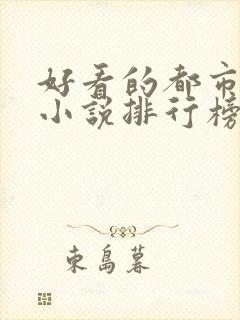 好看的都市
小说排行榜
東島暮